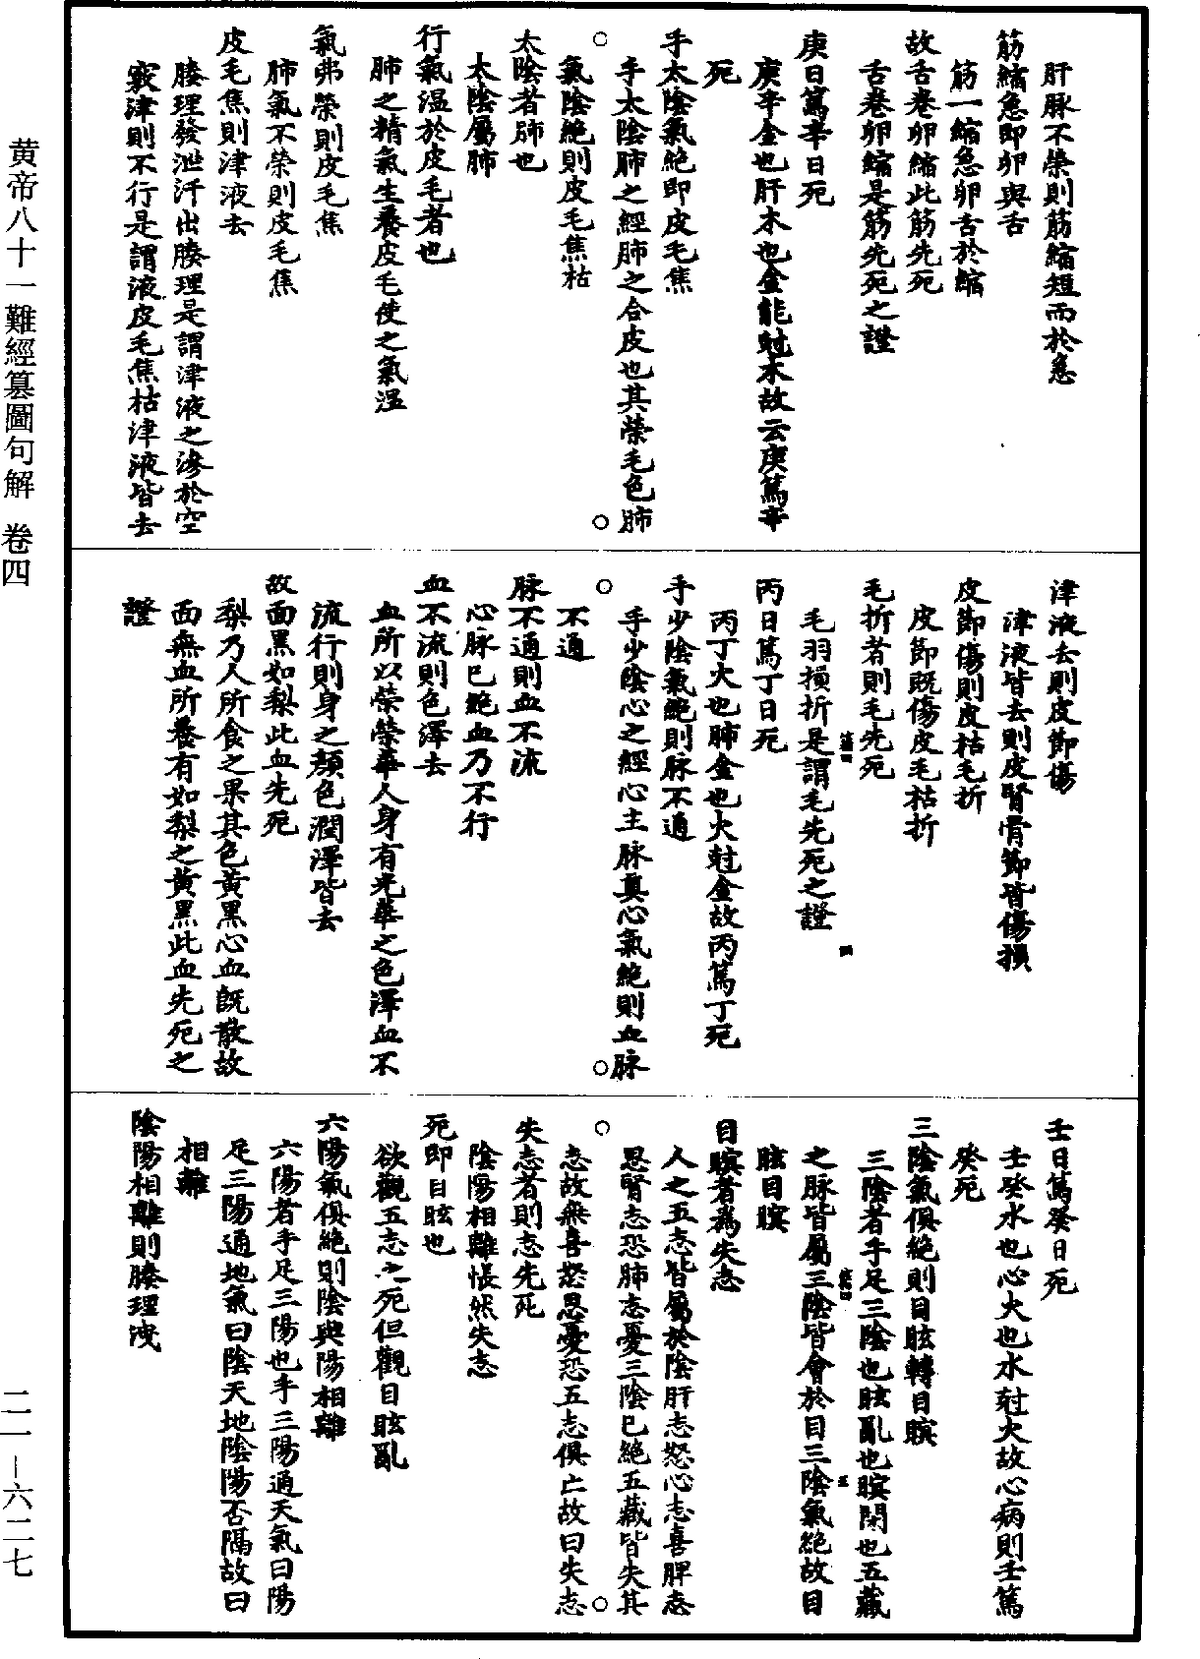 肝脉不榮則筋縮短而於急
筋縮急即卵與舌
筋一縮急卵舌於縮
故舌卷卵縮此筋先死
舌卷卵縮是筋先死之證
庚日篤辛日死
庚辛金也肝木也金能尅木故云庚篤辛
死
手太陰氣絕即皮毛焦
手太陰肺之經肺之合皮也其榮毛色肺
氣陰絕則皮毛焦枯
太陰者肺也
太陰屬肺
行氣温於皮毛者也
肺之精氣生養皮毛使之氣温
氣弗榮則皮毛焦
肺氣不榮則皮毛焦
皮毛焦則津液去
腠理發泄汗出腠理是謂津液之滲於空
竅津則不行是謂液皮毛焦枯津液皆去
津液去則皮節傷
津液皆去則皮腎骨節皆傷損
皮節傷則皮枯毛折
皮節既傷皮毛枯折
毛折者則毛先死
毛羽損折是謂毛先死之證
丙日篤丁日死
丙丁火也肺金也火尅金故丙篤丁死
手少陰氣絕則脉不通
手少陰心之經心主脉真心氣絕則血脉
不通
脉不通則血不流
心脉已絕血乃不行
血不流則色澤去
血所以榮榮華人身有光華之色澤血不
流行則身之顏色潤澤皆去
故面黑如梨此血先死
梨乃人所食之果其色黃黑心血既散故
面無血所養有如梨之黃黑此血先死之
證
壬日篤癸日死
壬癸水也心火也水尅火故心病則壬篤
癸死
三陰氣俱絕則目眩轉目瞑
三陰者手足三陰也眩亂也瞑閉也五藏
之脉皆屬三陰皆會於目三陰氣絕故目
眩目瞑
目瞑者為失志
人之五志皆屬於陰肝志怒心志喜脾志
思腎志恐肺志憂三陰已絕五藏皆失其
志故無喜怒思憂恐五志俱亡故曰失志
失志者則志先死
陰陽相離悵然失志
死即目眩也
欲觀五志之死但觀目眩亂
六陽氣俱絕則陰與陽相離
六陽者手足三陽也手三陽通天氣曰陽
足三陽通地氣曰陰天地陰陽否隔故曰
相離
陰陽相離則腠理洩
黄帝八十一難經纂圖句解 卷四
二一—六二七